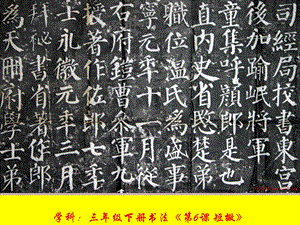 司經局校書東宮
後加踰岷將軍
童集呼顔郎是
直内史省愍楚弟
職位温氏為盛事
寧元年十一月從
右府鎧曹參軍九
授著作佐郎七年
士永徽元年三月
拜秘書省著作郎
為天冊府學士弟
学科：三年级下册书法《第6课 短撇》